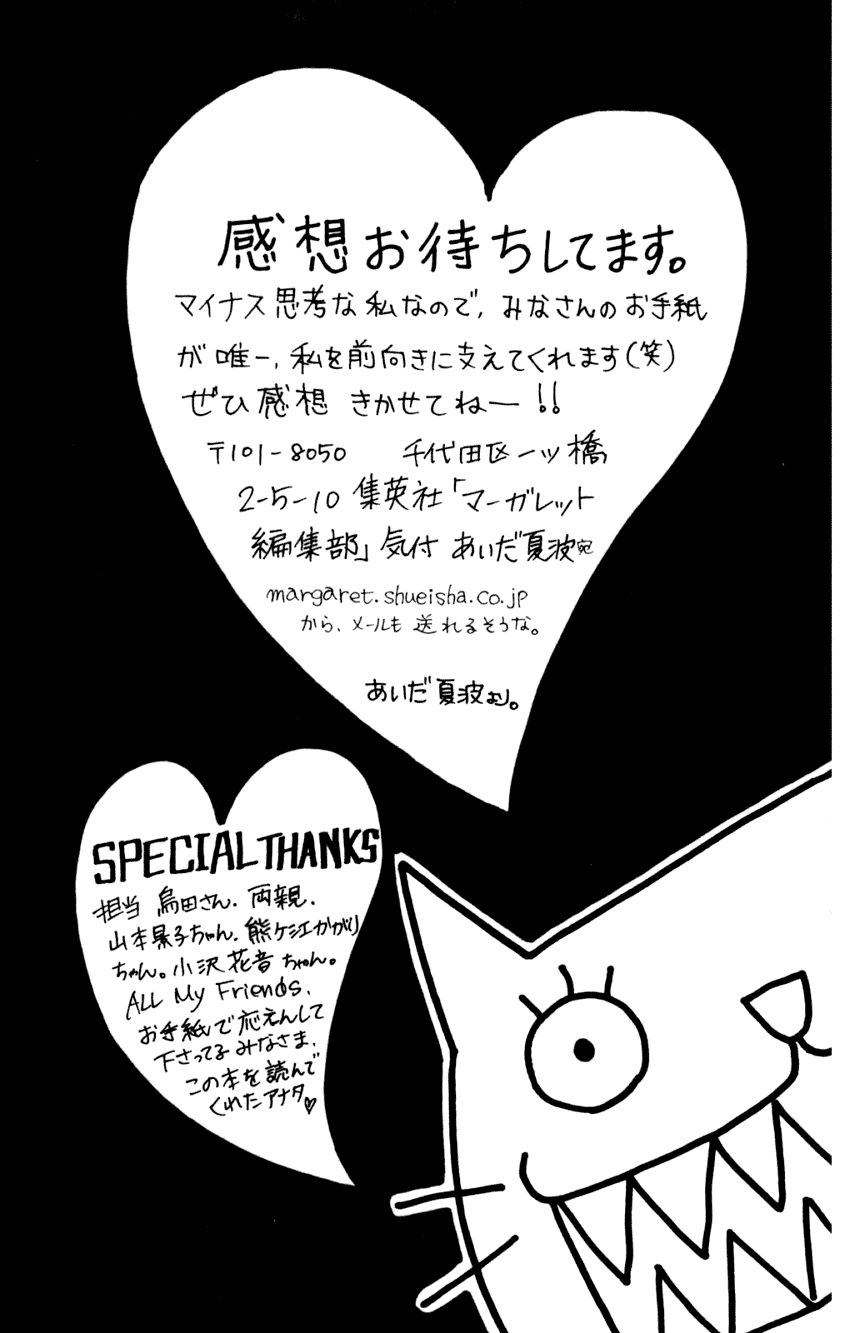 感想お待ちしてます。
マイナス思考な私なので、みなさんのお手紙
が唯一、私を前向きに支えてくれます(笑)
ぜひ感想 きかせてねー!!
〒101-8050 千代田区一ツ橋
2-5-10 集英社「マーガレット
編集部」気付 あいだ夏波宛
margaret.shueisha.co.jp
から、メールも 送れるそうな。
あいだ夏波より。
SPECIAL THANKS
担当 烏田さん、両親、
山本景子ちゃん、熊ケ江かがり
ちゃん。小沢花音ちゃん。
ALL My Friends、
お手紙で応えんして
下さってるみなさま、
この本を読んで
くれたアナタ♡